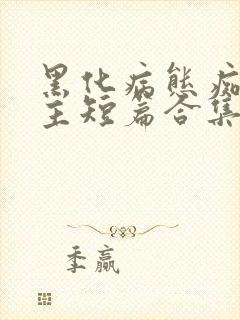 黑化病态痴
主短篇合集
季赢